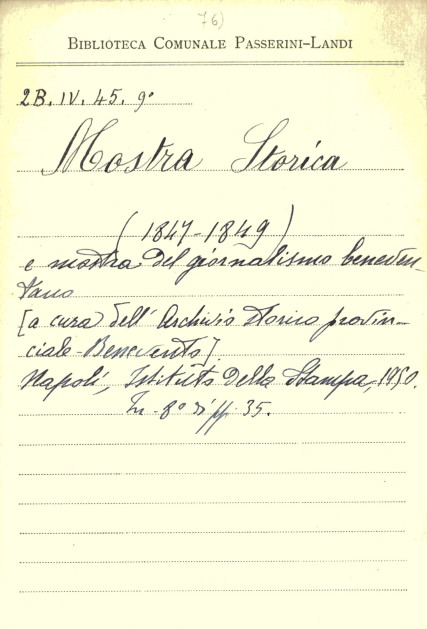 76)
BIBLIOTECA COMUNALE PASSERINI-LANDI
2B. IV. 45. 9°
Mostra Storica
(1847-1849)
e mostra del giornalismo beneven-
tano
[a cura dell' Archivio storico provin-
ciale - Benevento].
Napoli, Istituto Della Stampa, 1950.
In- 8° di pp. 35.